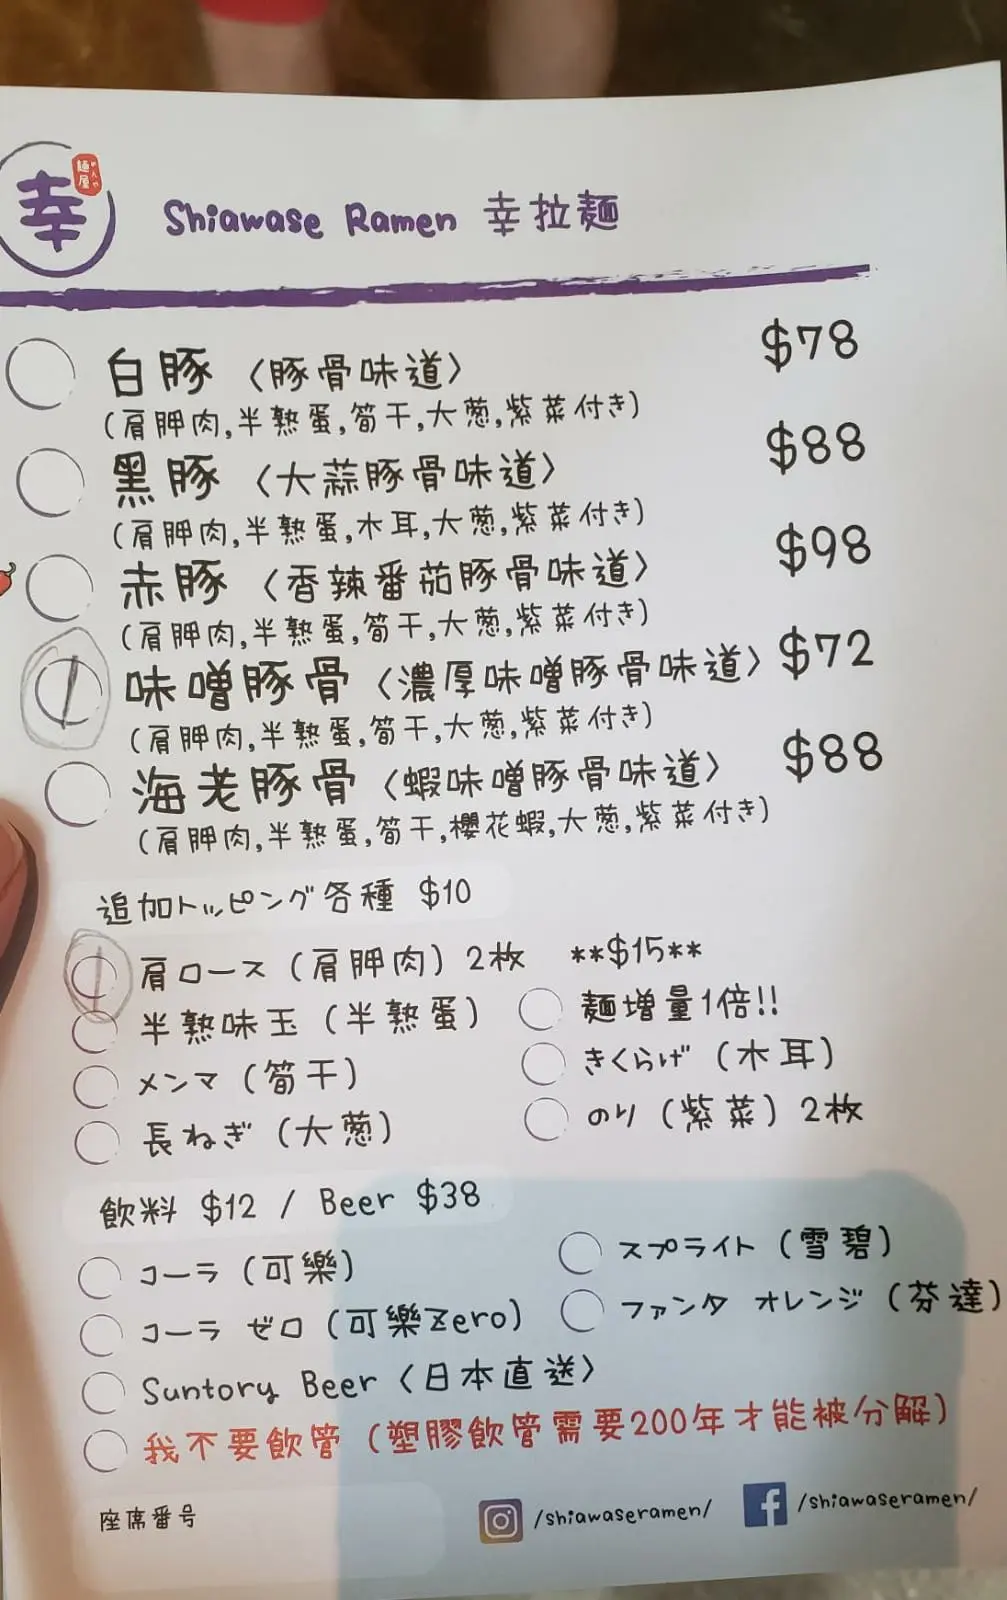 幸
麺屋
Shiawase Ramen 幸拉麵
白豚〈豚骨味道〉 $78
(肩胛肉,半熟蛋,筍干,大葱,紫菜付き)
黑豚〈大蒜豚骨味道〉 $88
(肩胛肉,半熟蛋,木耳,大葱,紫菜付き)
赤豚〈香辣番茄豚骨味道〉 $98
(肩胛肉,半熟蛋,筍干,大葱,紫菜付き)
味噌豚骨〈濃厚味噌豚骨味道〉 $72
(肩胛肉,半熟蛋,筍干,大葱,紫菜付き)
海老豚骨〈蝦味噌豚骨味道〉 $88
(肩胛肉,半熟蛋,筍干,櫻花蝦,大葱,紫菜付き)
追加トッピング各種 $10
肩ロース(肩胛肉)2枚 **$15**
半熟味玉(半熟蛋) 麵增量1倍!!
メンマ(筍干) きくらげ(木耳)
長ねぎ(大葱) のり(紫菜)2枚
飲料 $12 / Beer $38
コーラ(可樂) スプライト(雪碧)
コーラ ゼロ(可樂Zero) ファンタ オレンジ(芬達)
Suntory Beer〈日本直送〉
我不要飲管(塑膠飲管需要200年才能被分解)
座席番号 /shiawaseramen/ /shiawaseramen/